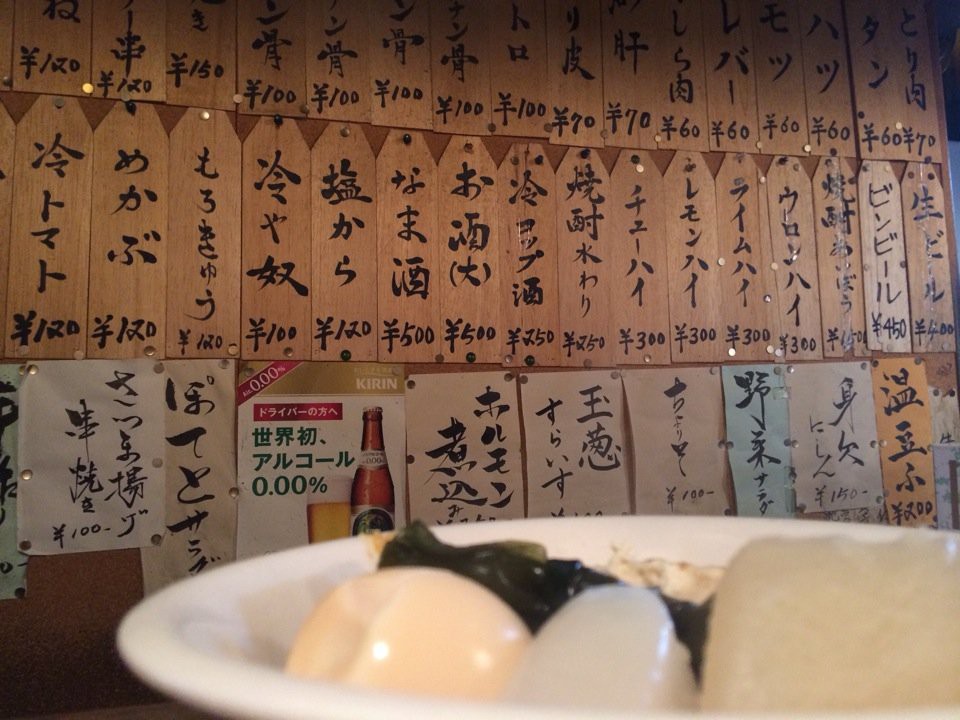 とり肉
¥70
タン
¥60
ハツ
¥60
モツ
¥60
レバー
¥60
しら肉
¥60
肝
¥70
り皮
¥70
トロ
¥100
ナン骨
¥100
ン骨
¥100
ン骨
¥100
ン骨
¥100
¥150
串
¥120
ね
¥120
生ビール
¥400
ビンビール
¥450
焼酎
¥150
ウーロンハイ
¥300
ライムハイ
¥300
レモンハイ
¥300
チューハイ
¥300
焼酎水わり
¥250
冷コップ酒
¥250
お酒(大)
¥500
なま酒
¥500
塩から
¥120
冷や奴
¥100
もろきゅう
¥120
めかぶ
¥120
冷トマト
¥120
温豆ふ
¥200
身欠
にしん
¥150-
野菜サラダ
¥100-
玉葱
すらいす
ホルモン
煮込み
ALC.0.00%
KIRIN
ドライバーの方へ
世界初、
アルコール
0.00%
ぽてとサラダ
さつま揚げ
串焼き
¥100-